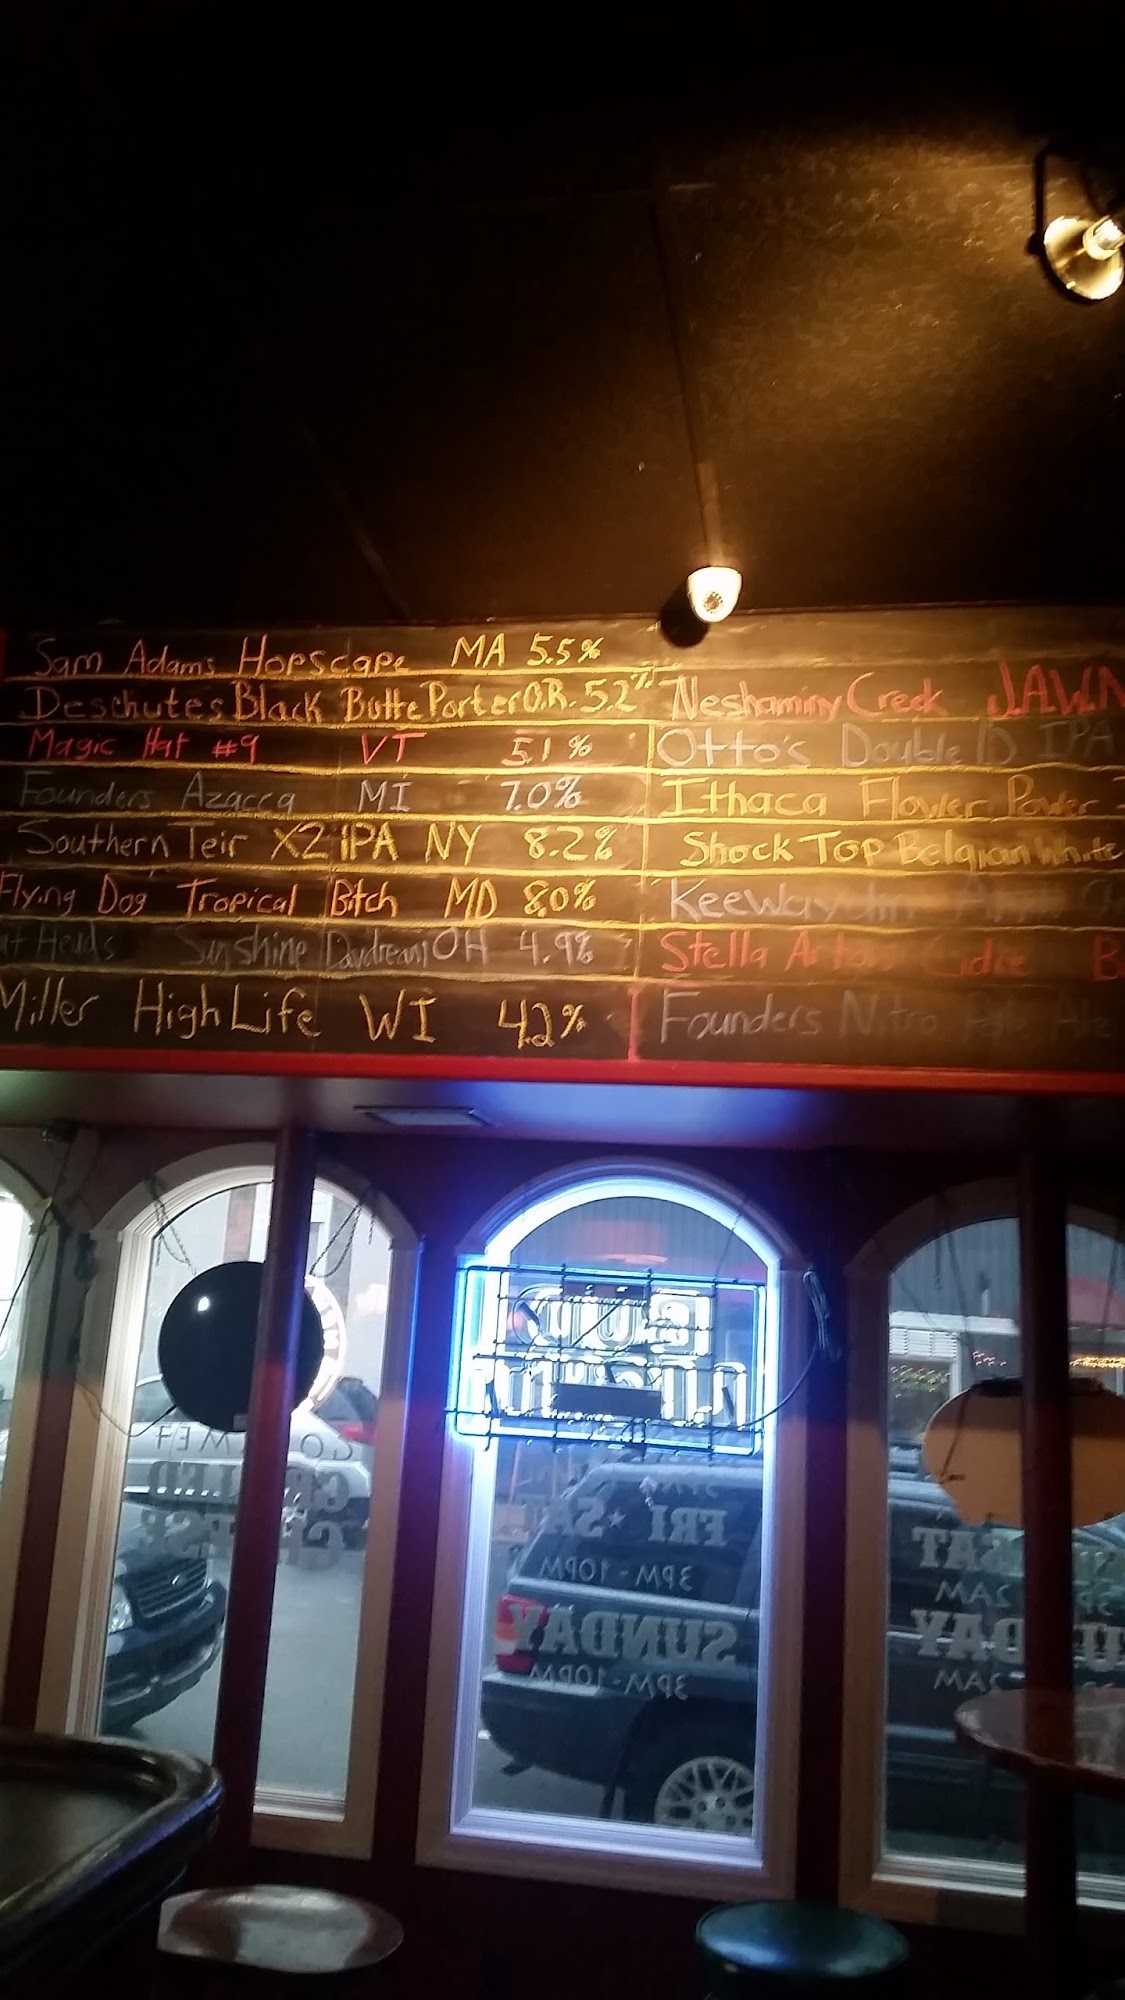 Sam Adams Hopscape MA 5.5%
Deschutes Black Butte Porter O.R. 5.2%
Magic Hat #9 VT 5.1%
Founders Azacca MI 7.0%
Southern Teir X2 IPA NY 8.2%
Flying Dog Tropical Bitch MD 8.0%
at Heads Sunshine Daydream OH 4.9%
Miller High Life WI 4.2%
Neshaminy Creek J.A.W.N
Otto's Double D IPA
Ithaca Flower Power
Shock Top Belgian White
Keewaydin
Stella Artois Cidre B
Founders Nitro Pale Ale
BUD
LIGHT
GOURMET
GRILLED
CHEESE
FRI ★ SAT
3PM - 10PM
SUNDAY
3PM - 10PM
SAT
2AM
UNDAY
2AM